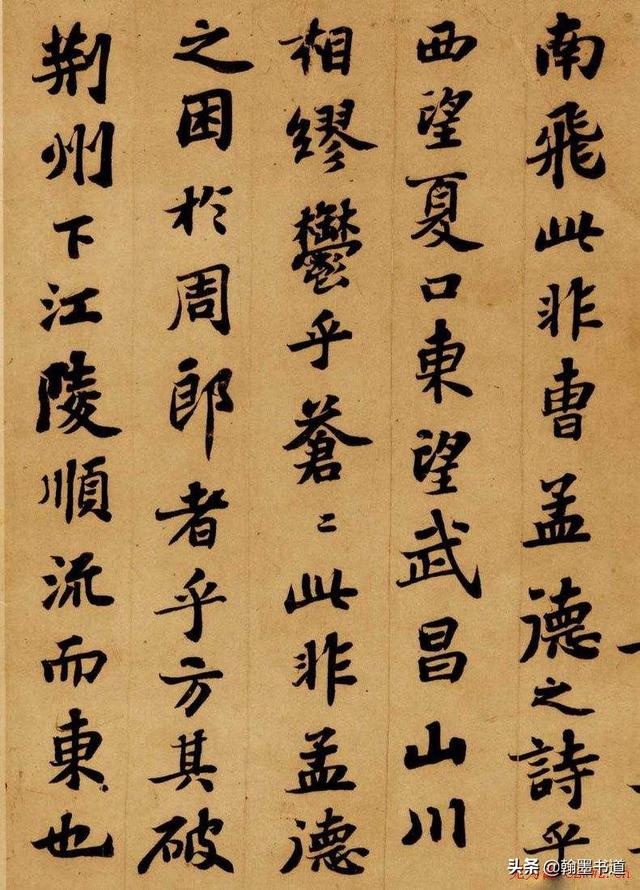 南飛此非曹孟德之詩乎
西望夏口東望武昌山川
相繆鬱乎蒼〻此非孟德
之困於周郎者乎方其破
荆州下江陵順流而東也
头条 @翰墨书道